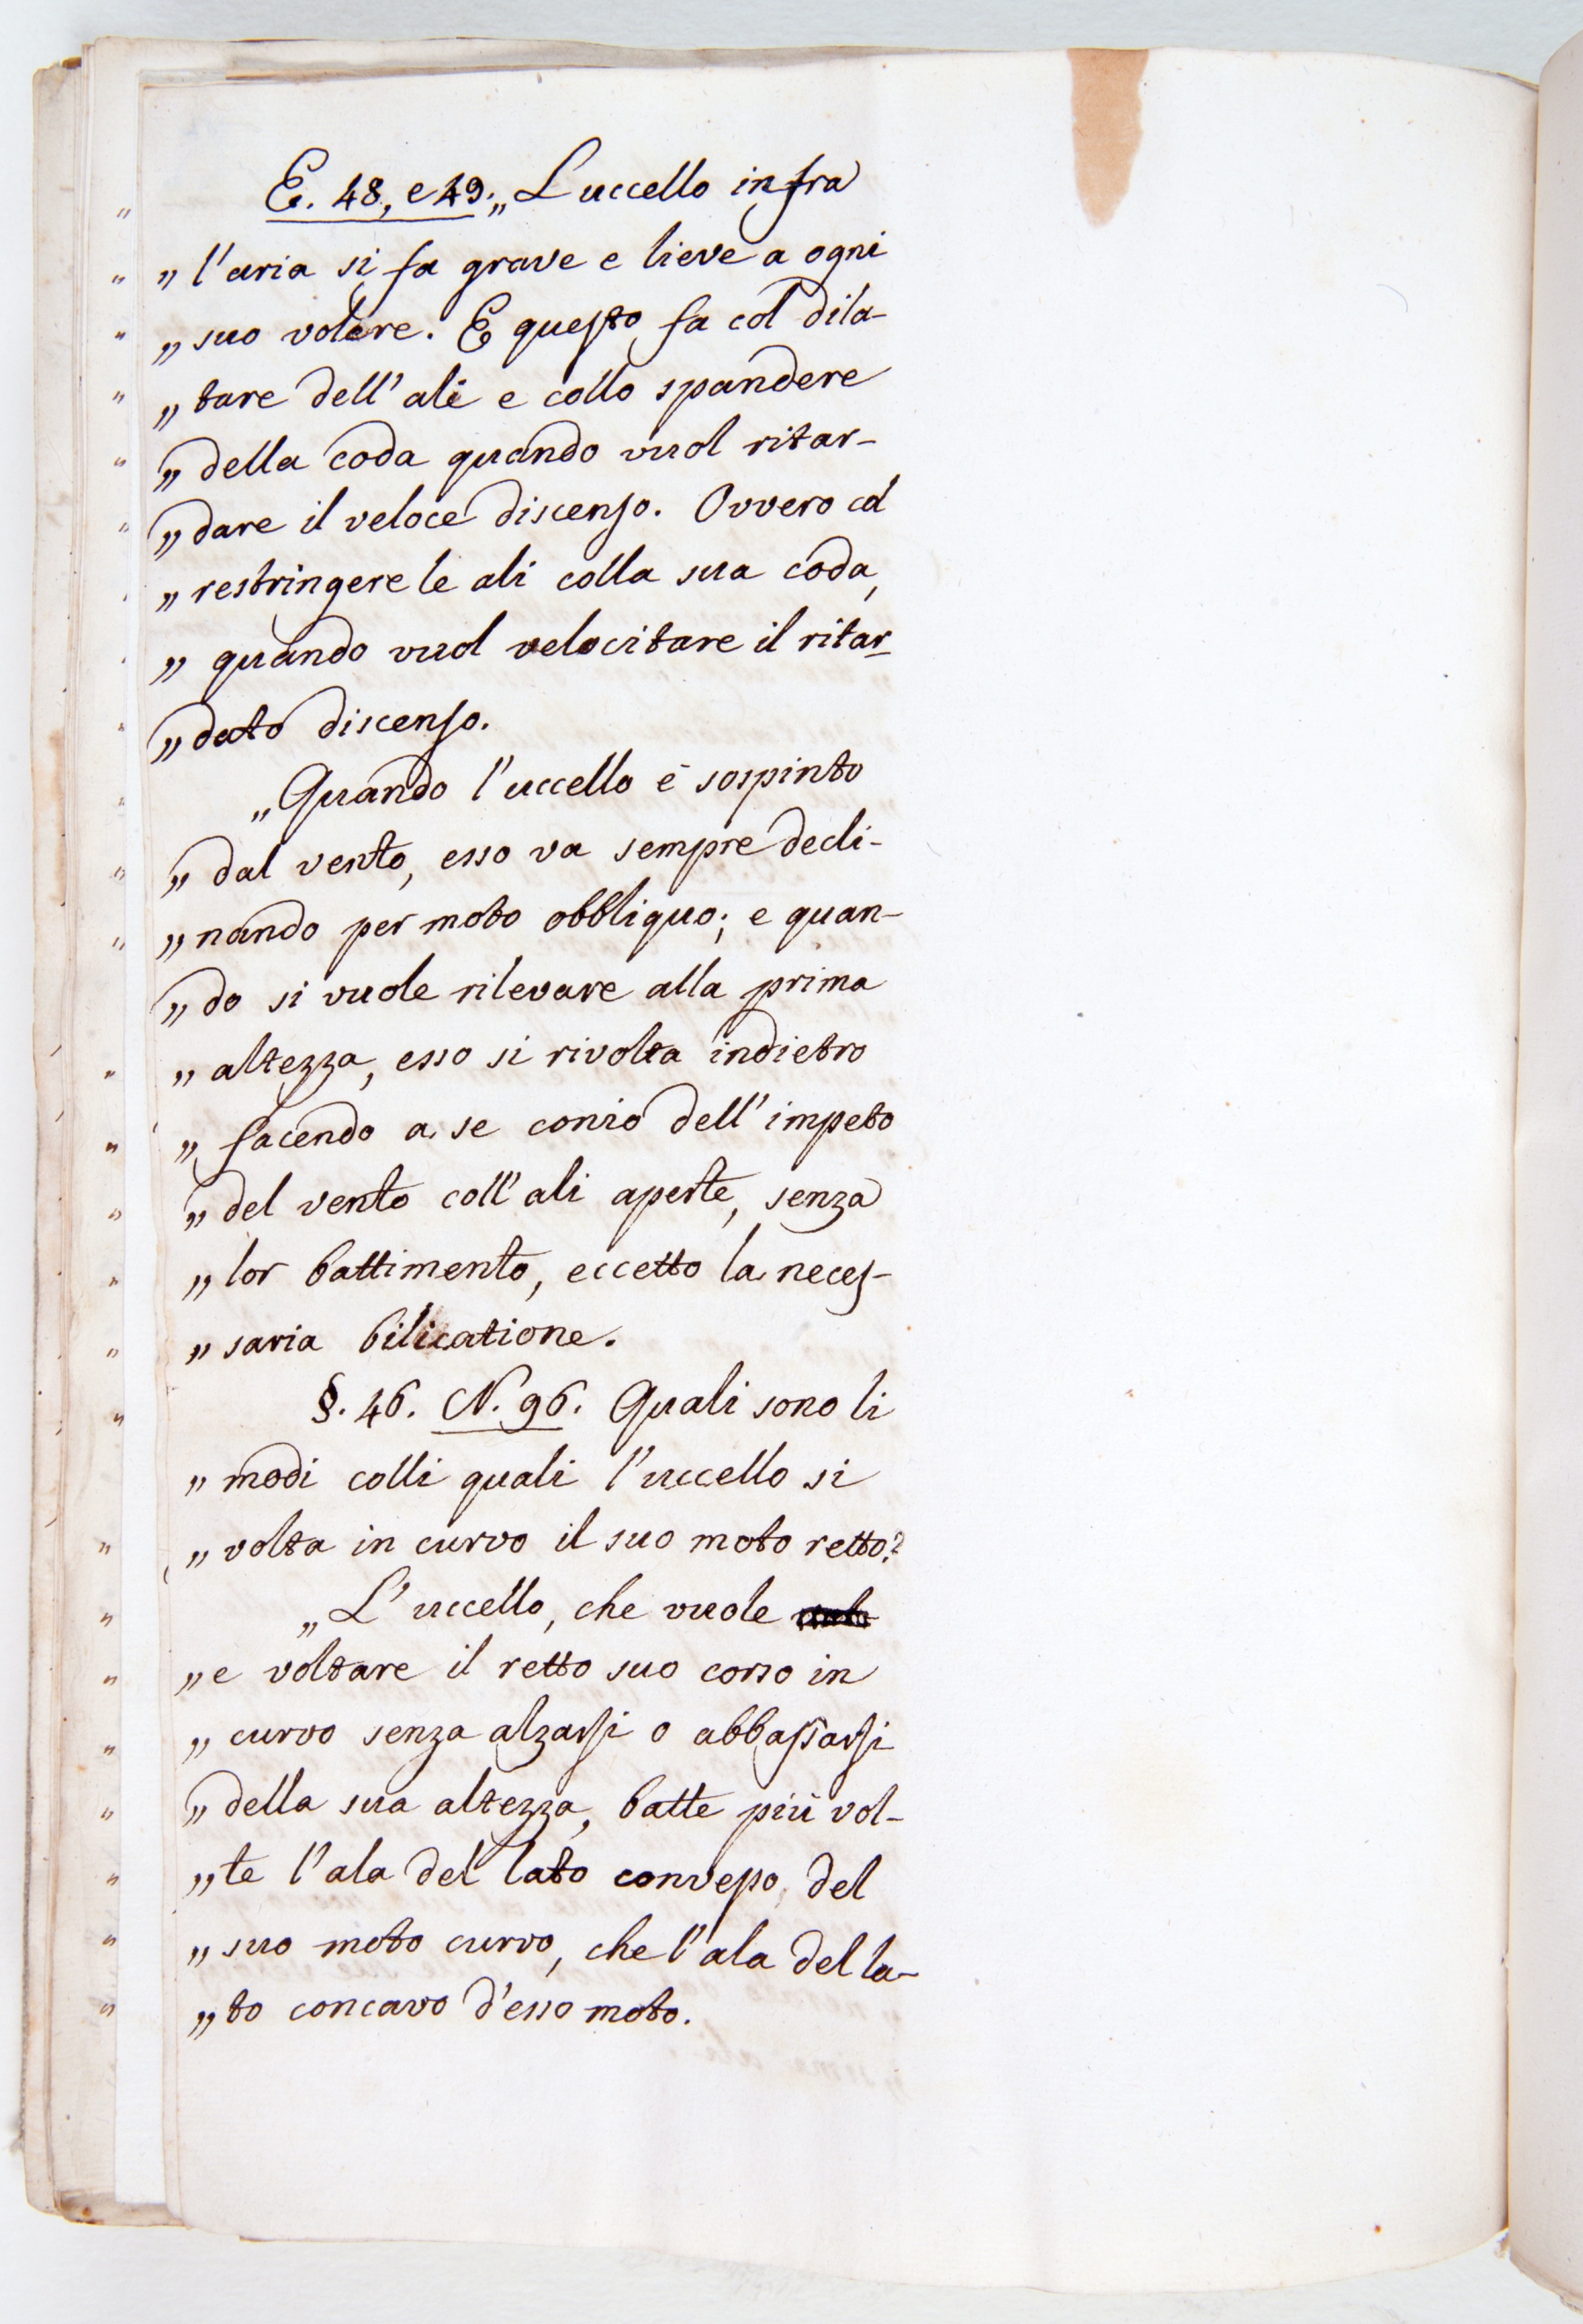 E. 48, e 49. „ L'uccello infra
„ l'aria si fa grave e lieve a ogni
„ suo volere. E questo fa col dila-
„ tare dell' ali e collo spandere
„ della coda quando vuol ritar-
„ dare il veloce discenso. Ovvero col
„ restringere le ali colla sua coda,
„ quando vuol velocitare il ritar-
„ dato discenso.
„ Quando l'uccello è sospinto
„ dal vento, esso va sempre decli-
„ nando per moto obbliquo; e quan-
„ do si vuole rilevare alla prima
„ altezza, esso si rivolta indietro
„ facendo a se conio dell' impeto
„ del vento coll' ali aperte, senza
„ lor battimento, eccetto la neces-
„ saria bilicatione.
§. 46. N. 96. Quali sono li
„ modi colli quali l'uccello si
„ volta in curvo il suo moto retto?
„ L'uccello, che vuole
„ e voltare il retto suo corso in
„ curvo senza alzarsi o abbassarsi
„ della sua altezza, batte più vol-
„ te l'ala del lato convesso del
„ suo moto curvo, che l'ala del la-
„ to concavo d'esso moto.